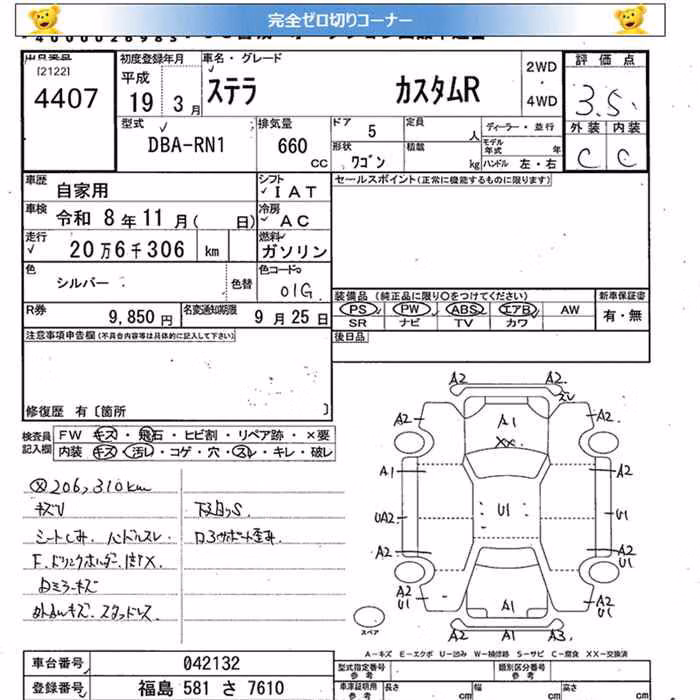 完全ゼロ切りコーナー
出品番号
[2122]
4407
初度登録年月
平成
19 3月
車名・グレード
ステラ カスタムR
2WD
・
4WD
評価点
3.5
外装 内装
C C
型式
DBA-RN1
排気量
660
cc
ドア 5
定員 人
形状 ワゴン
積載 kg
ディーラー・並行
モデル年式 年
ハンドル 左・右
車歴 自家用
シフト IAT
セールスポイント(正常に機能するものに限ります)
車検 令和 8年11月( 日)
冷房 AC
走行 20万6千306 km
燃料 ガソリン
色 シルバー 色替
色コードNo 01G
装備品 (純正品に限り○をつけてください)
PS PW ABS エアB AW
SR ナビ TV カワ
新車保証書
有・無
R券 9,850円
名変通知期限 9月25日
後日品
注意事項申告欄(不具合内容等は具体的に記入して下さい)
修復歴 有〔箇所 〕
検査員記入欄
FW キズ・飛石・ヒビ割・リペア跡・×要
内装 キズ・汚レ・コゲ・穴・スレ・キレ・破レ
206,310km
キズU
下廻りS
シートしみ、ハンドルスレ
F.ドリンクホルダー
ミラーキズ
スタッドレス
A2 A2
A2 A1 A2
XX
A1 A2
UA2 U1 U1
A2 A2
U1
A2 U1 A1 A2 U1
A2 A1 A3
スペア
A-キズ E-エクボ U-凹み W-補修跡 S-サビ C-腐食 XX-交換済
車台番号 042132
登録番号 福島 581 さ 7610
型式指定番号
参考
類別区分番号
参考
車庫証明用
参考
長さ cm 幅 cm 高さ cm